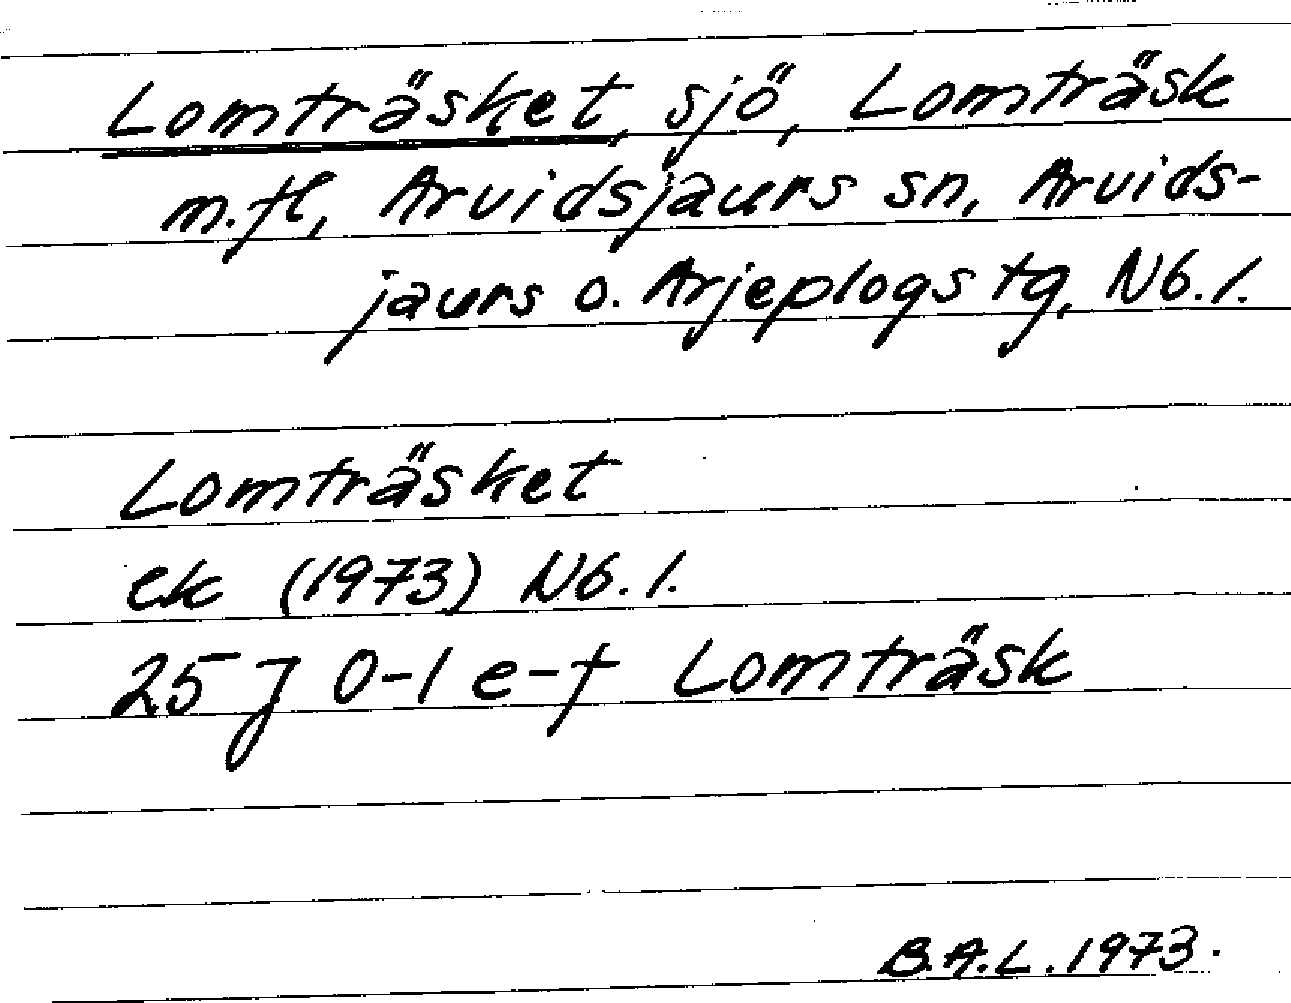 Lomträsket, sjö, Lomträsk
m.fl, Arvidsjaurs sn, Arvids-
jaurs o. Arjeplogs tg, Nb.l.
Lomträsket
ek (1973) Nb.l.
25 J 0-1 e-f Lomträsk
B.A.L. 1973.